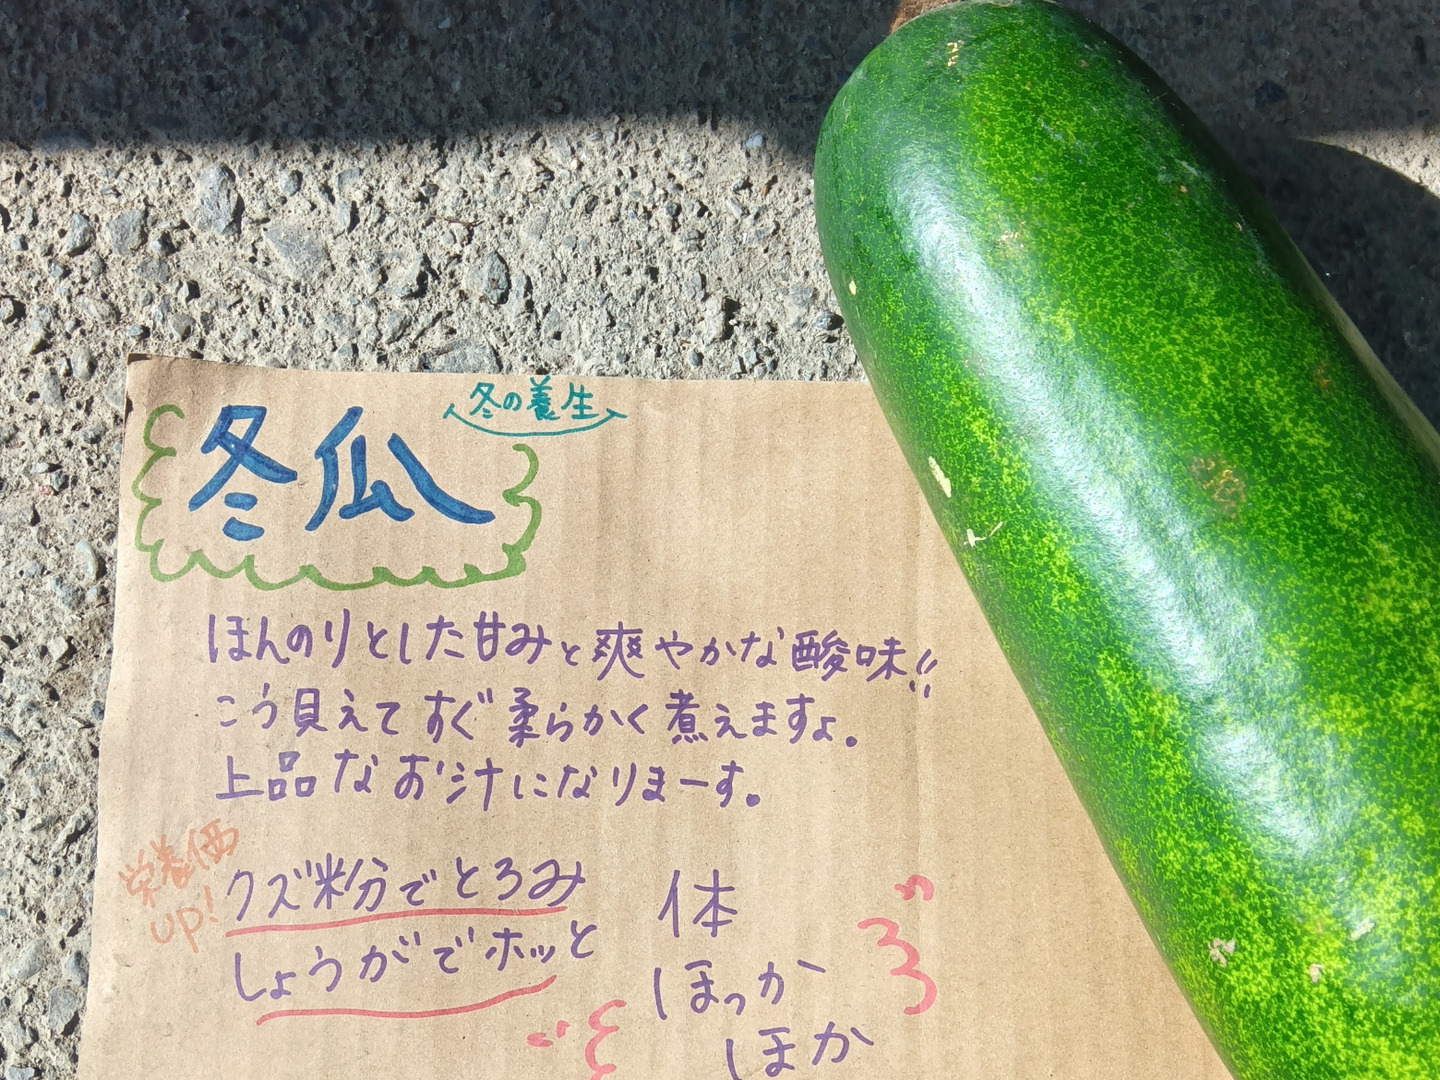 冬の養生
冬瓜
ほんのりとした甘みと爽やかな酸味!!
こう見えてすぐ柔らかく煮えますよ。
上品なお汁になりまーす。
栄養価
up!
クズ粉分でとろみ
しょうがでホッと
体
ほっか
ほか